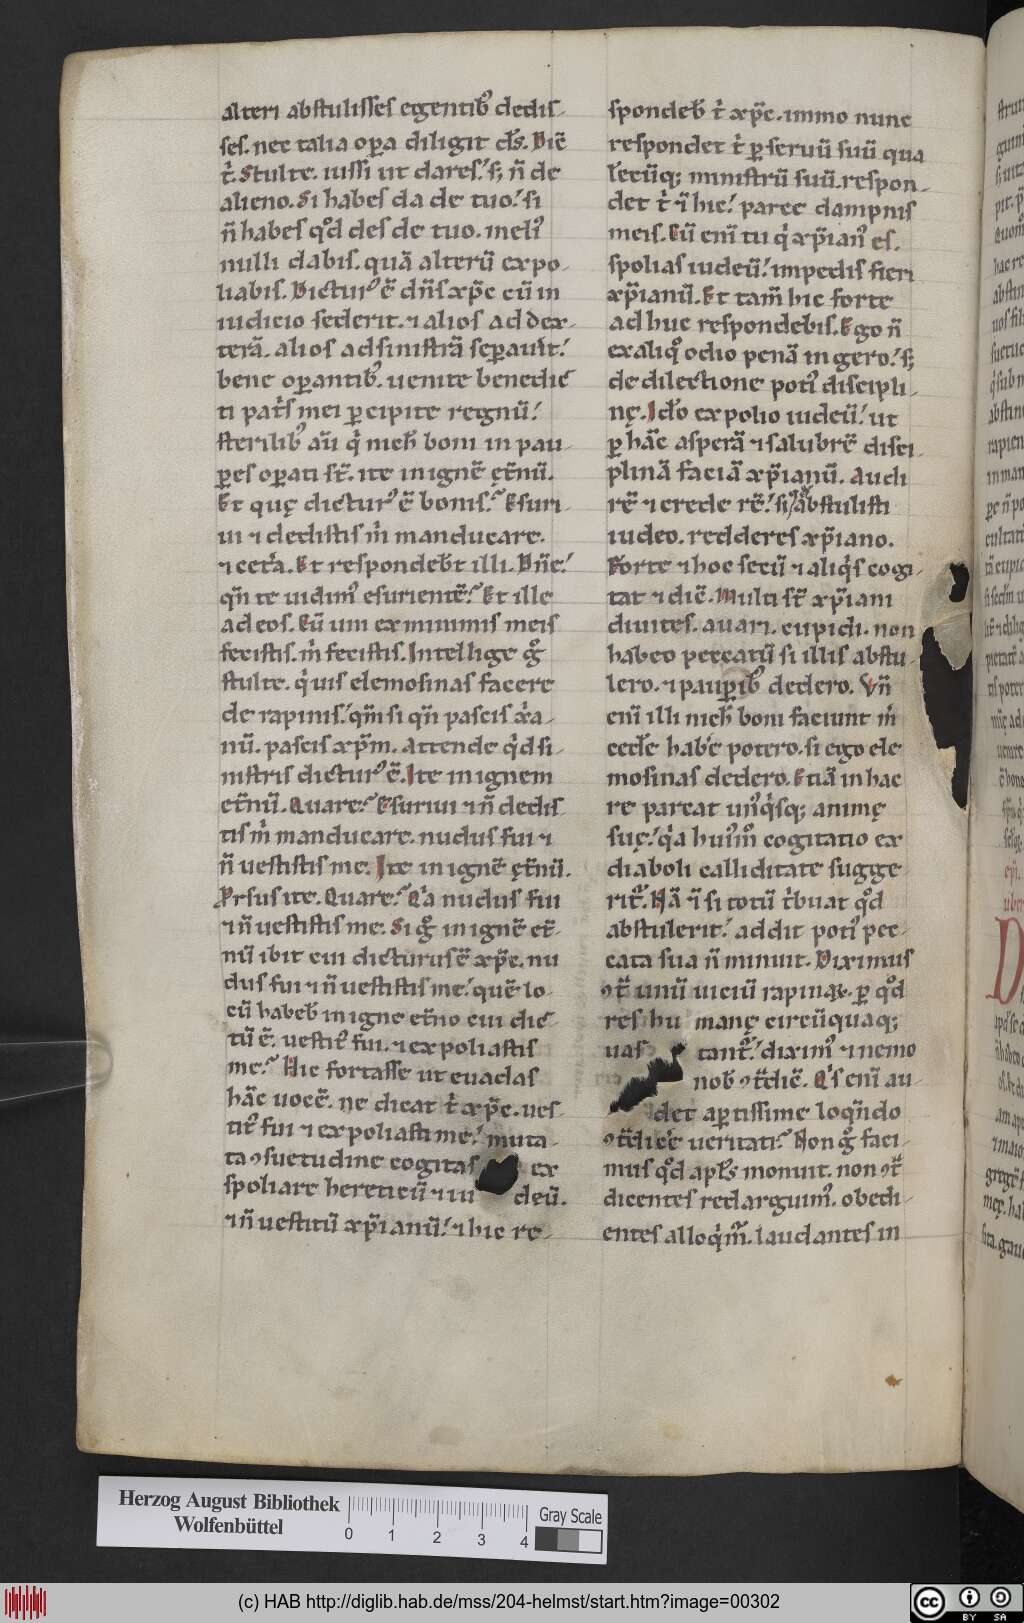 alteri abstulisses egentib᷒ dedis-
ses. nec talia oꝑa diligit d̅s. Dic̅
t̊. Stulte. iussi ut dares. s; n̅ de
alieno. Si habes da de tuo. si
n̅ habes qd̊ des de tuo. meli᷒
nulli dabis. quā alterū expo-
liabis. Dictur᷒ ē dn̅s xp̅c cū in
iudicio sederit. ⁊ alios ad dex-
terā. alios ad sinistrā seꝑauit.
bene oꝑantib᷒. uenite benedic̅
ti pat̊s mei ꝑcipite regnū.
sterilib᷒ au̅ q̊ nich̅ boni in pau-
ꝑes oꝑati st̅. ite in ignē ęt̅nū.
Et quę dictur᷒ ē bonis. Esuri-
ui ⁊ dedistis m̊ manducare.
⁊ cet̊a. Et respondeb̅t illi. Dn̅e.
qn̅ te uidim᷒ esurientē. Et ille
ad eos. Cū uni ex minimis meis
fecistis. m̊ fecistis. Intellige g̊
stulte. q̊ uis elemosinas facere
de rapinis. qm̅ si qn̅ pascis x̊a-
nū. pascis xp̅m. Attende qd̊ si-
nistris dictur᷒ ē. Ite in ignem
et̅nū. Quare. Esuriui ⁊ n̅ dedis
tis m̊ manducare. nudus fui ⁊
n̅ uestistis me. Ite in ignē ęt̅nū.
Prsus ite. Quare. Q̊a nudus fui
⁊ n̅ uestistis me. Si g̊ in ignē et̅-
nū ibit cui dicturus ē xp̅c. nu
dus fui ⁊ n̅ uestistis me. quē lo-
cū habeb̅ in igne et̅no cui dic̅-
tū ē. uestit᷒ fui. ⁊ expoliastis
me. Hic fortasse ut euadas
hāc uocē. ne dicat t̊ xp̅c. ues-
tit᷒ fui ⁊ expoliasti me. muta-
ta ꝯsuetudine cogitas ex
spoliare hereticū ⁊ iu deū.
⁊ n̅ uestitū xp̅ianū. ⁊ hic re-
spondeb̅ t̊ xp̅c. immo nunc
respondet t̊ ꝑ seruū suū qua
lēcūq; ministrū suū. respon-
det t̊ ī hic. parce dampnis
meis. Cū enī tu q̊ xp̅ian᷒ es.
spolias iudeū. impedis fieri
xp̅ianū. Et tam̅ hic forte
adhuc respondebis. Ego n̅
ex aliq̊ odio penā ingero. s;
de dilectione poti᷒ discipli-
nę. Id̊o expolio iudeū. ut
ꝑ hāc asperā ⁊ salubrē disci-
plinā faciā xp̅ianū. Audi
rē ⁊ crede rē. si q̊ abstulisti
iudeo. redderes xp̅iano.
Forte ⁊ hoc secū ⁊ aliq̊s cogi-
tat ⁊ dic̅. Multi st̅ xp̅iani
diuites. auari. cupidi. non
habeo peccatū si illis abstu-
lero. ⁊ pauꝑib᷒ dedero. Vn̅
enī illi nich̅ boni faciunt m̊
cede̅ habe̅ potero. si ego ele
mosinas dedero. Etiā in hac
re parcat un᷒q̊sq; animę
suę. q̊a hui᷒m̊ cogitatio ex
diaboli calliditate sugge
rit᷒. Nā ī si totū t̊buat qd̊
abstulerit. addit poti᷒ pec-
cata sua n̅ minuit. Diximus
ꝯt̅ unū uiciū rapinaꝝ. ꝑ qd̊
res hu manę circūquaq;
uas tant᷒. dixim᷒ ⁊ nemo
nob̅ ꝯt̅dic̅. Q̊s enī au-
det aꝑtissime loqn̅do
ꝯt̅dic̅e ueritati. Non g̊ faci-
mus qd̊ apl̅s monuit. non ꝯt̅
dicentes redarguim᷒. obedi-
entes alloq̊m᷒. laudantes in
Herzog August Bibliothek
Wolfenbüttel
0 1 2 3 4
Gray Scale
(c) HAB http://diglib.hab.de/mss/204-helmst/start.htm?image=00302
cc BY SA